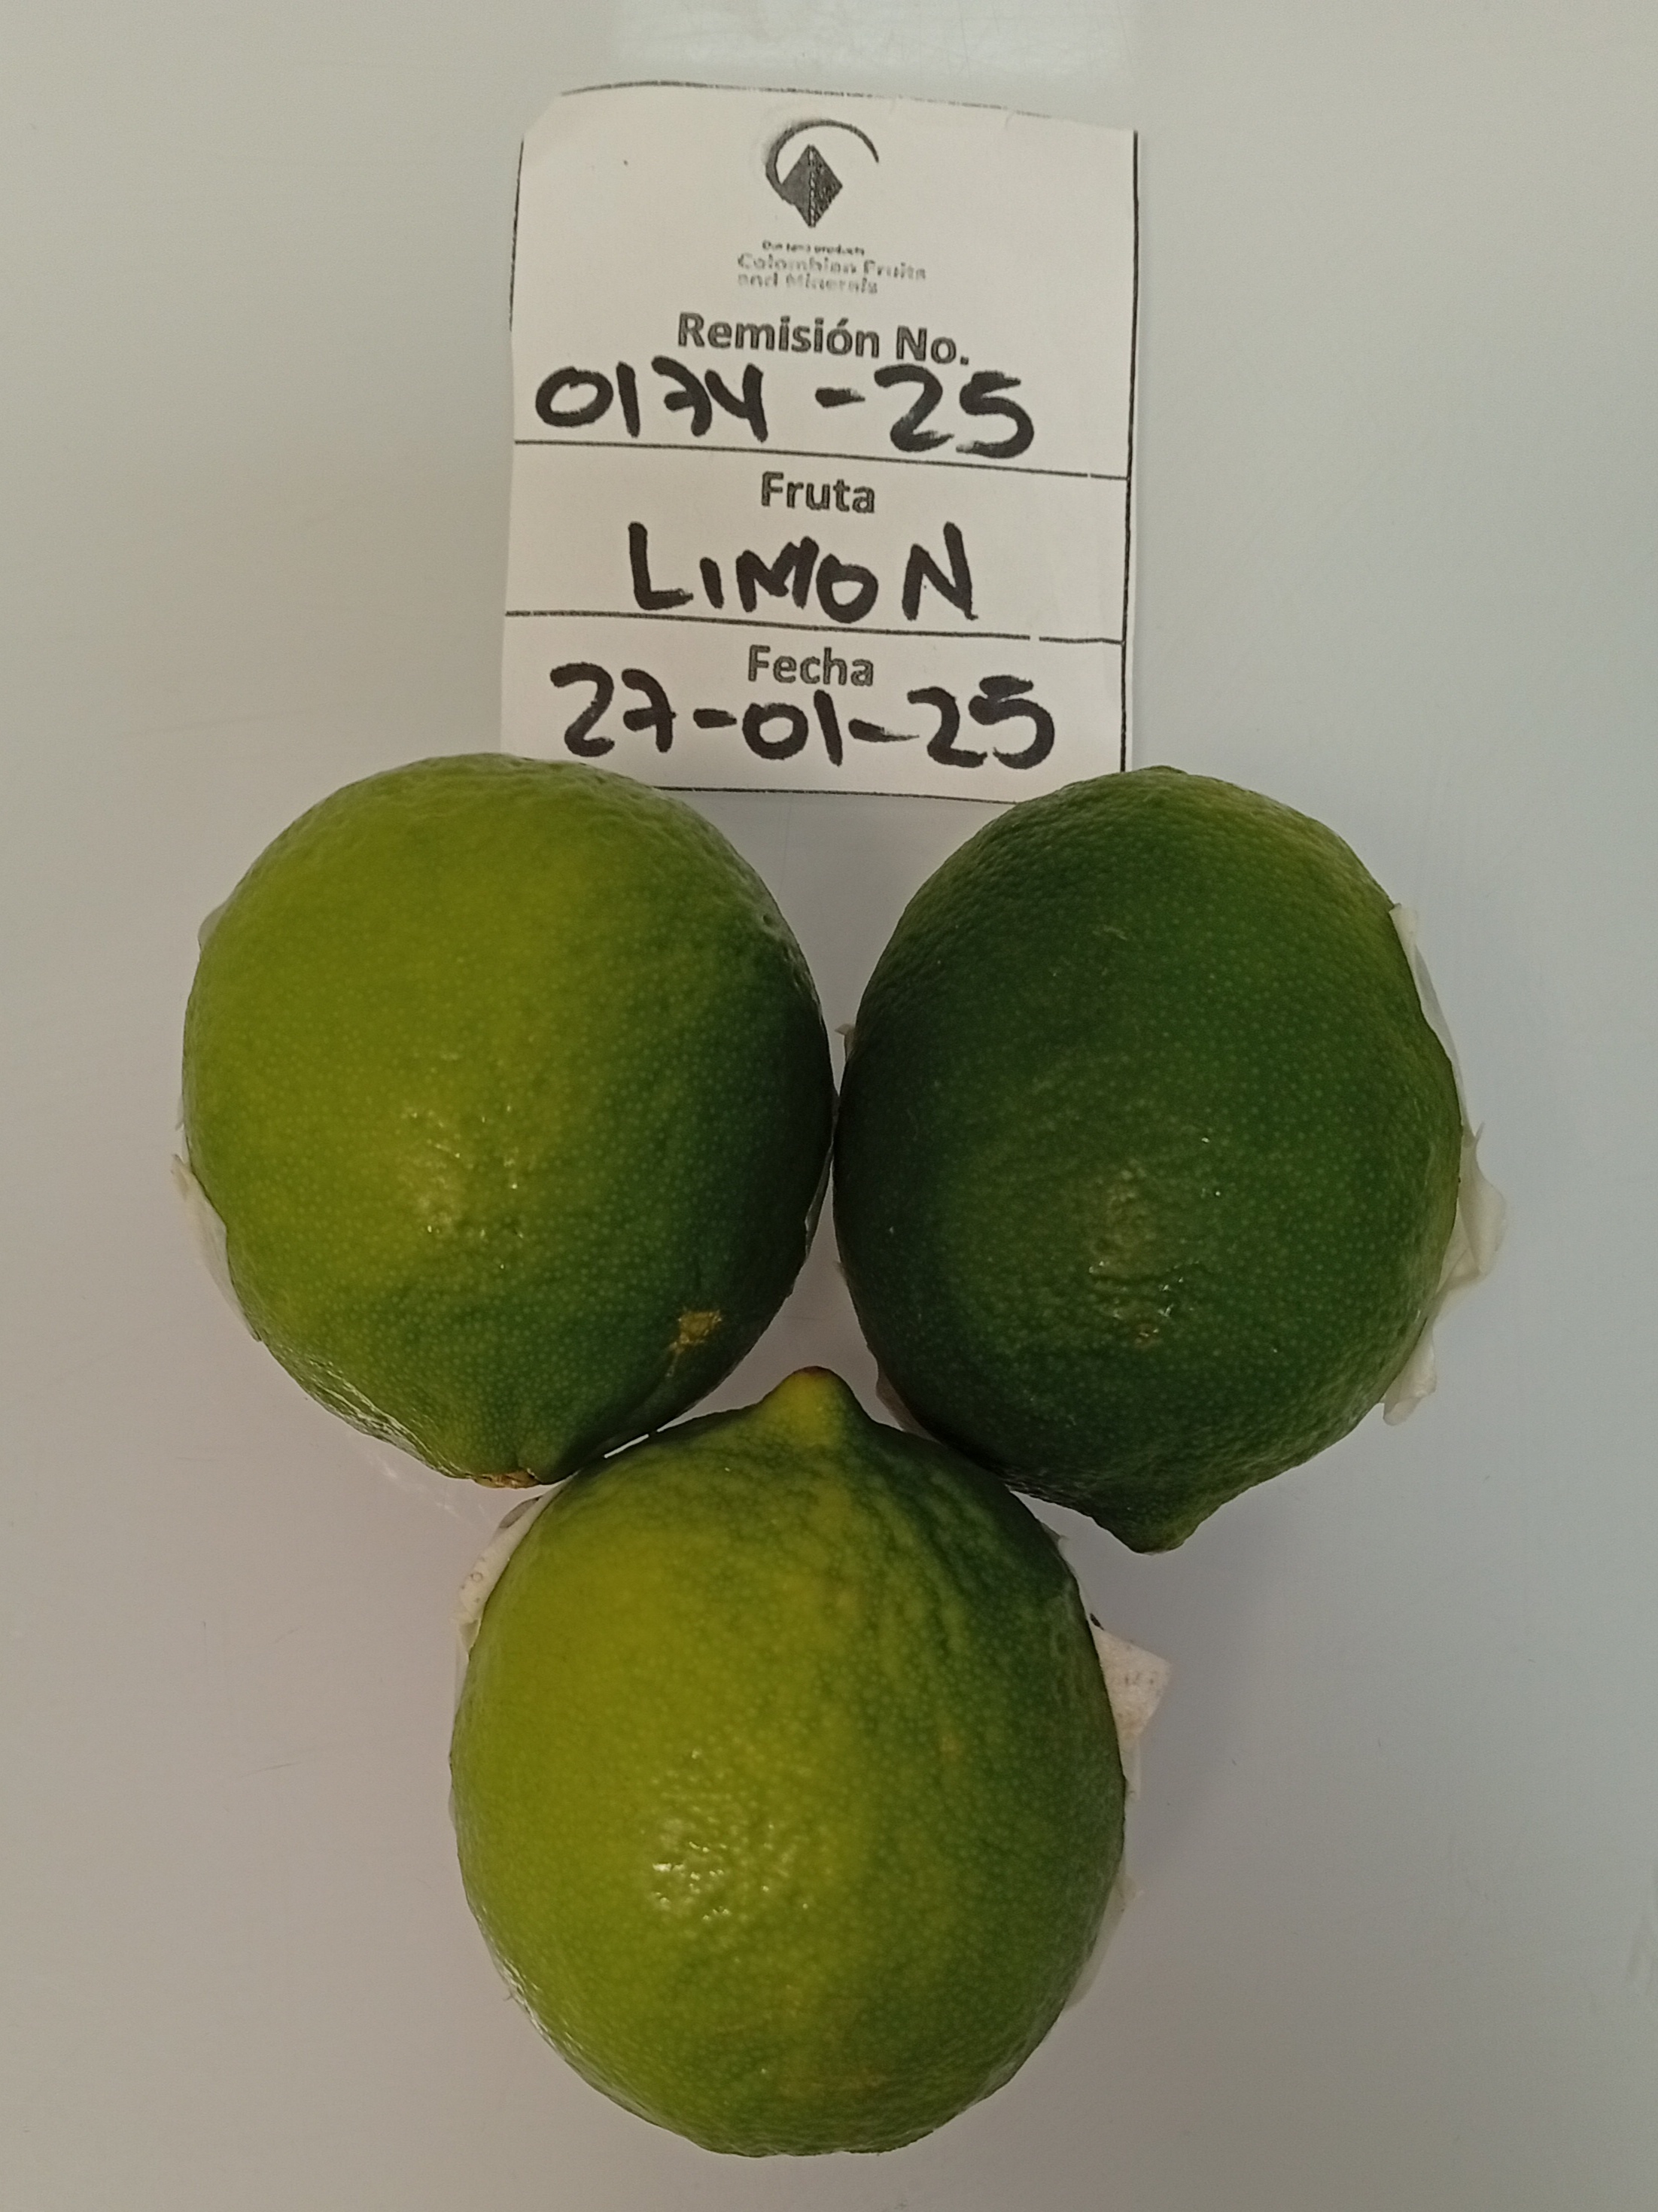 Colombian Fruits
and Minerals
Remisión No.
0174-25
Fruta
LIMON
Fecha
27-01-25